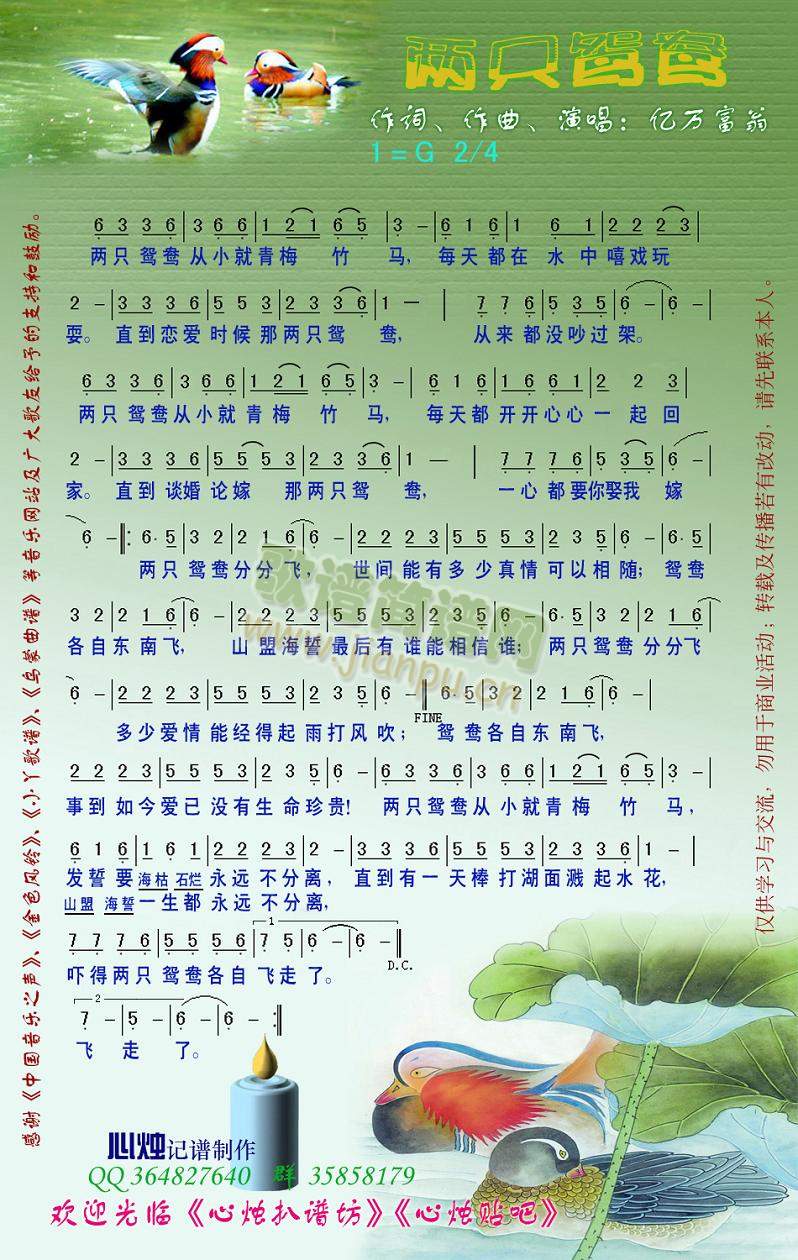 两只鸳鸯
作词、作曲、演唱：亿万富翁
1=G 2/4
6 3 3 6|3 6 6|1 2 1 6 5|3 -|6 1 6|1 6 1|2 2 2 3|
两只鸳鸯从小就青梅竹马，每天都在水中嘻戏玩
2 -|3 3 3 6|5 5 3|2 3 3 6|1 —|7 7 6|5 3 5|6 -|6 -|
耍。直到恋爱时候那两只鸳鸯，从来都没吵过架。
6 3 3 6|3 6 6|1 2 1 6 5|3 -|6 1 6|1 6 6 1|2 2 3|
两只鸳鸯从小就青梅竹马，每天都开开心心一起回
2 -|3 3 3 6|5 5 5 3|2 3 3 6|1 —|7 7 7 6|5 3 5|6
家。直到谈婚论嫁那两只鸳鸯，一心都要你娶我嫁
6 -‖:6·5|3 2|2 1 6|6 -|2 2 2 3|5 5 5 3|2 2 2 3|6 -|6·5|
两只鸳鸯分分飞，世间能有多少真情可以相随；鸳鸯
3 2|2 1 6|6 -|2 2 2 3|5 5 5 3|2 3 2 5|6 -|6·5|3 2|2 1 6|
各自东南飞，山盟海誓最后有谁能相信谁；两只鸳鸯分分飞
6 -|2 2 2 3|5 5 5 3|2 3 2 5|6 -‖6·5|3 2|2 1 6|6 -|
FINE
多少爱情能经得起雨打风吹；鸳鸯各自东南飞，
2 2 2 3|5 5 5 3|5 5 5 3|2 -|6 3 3 6|3 6 6|1 2 1|6 5|3 -|
事到如今爱已没有生命珍贵!两只鸳鸯从小就青梅竹马，
6 1 6|1 6 1|2 2 2 3|2 -|3 3 3 6|5 5 5 3|2 3 3 6|1 -|
发誓要海枯石烂永远不分离，直到有一天棒打湖面溅起水花，
山盟海誓一生都永远不分离，
7 7 7 6|5 5 5 6|7 5|6 -|6 -‖
1
D.C.
吓得两只鸳鸯各自飞走了。
2
7 -|5 -|6 -|6 -:‖
飞走了。
心烛记谱制作
QQ 364827640 群 35858179
欢迎光临《心烛扒谱坊》《心烛贴吧》
感谢《中国音乐之声》、《金色风铃》、《小丫歌谱》、《乌蒙曲谱》等音乐网站及广大歌友给予的支持和鼓励。
仅供学习与交流，勿用于商业活动；转载及传播若有改动，请先联系本人。
歌谱简谱网
www.jianpu.cn